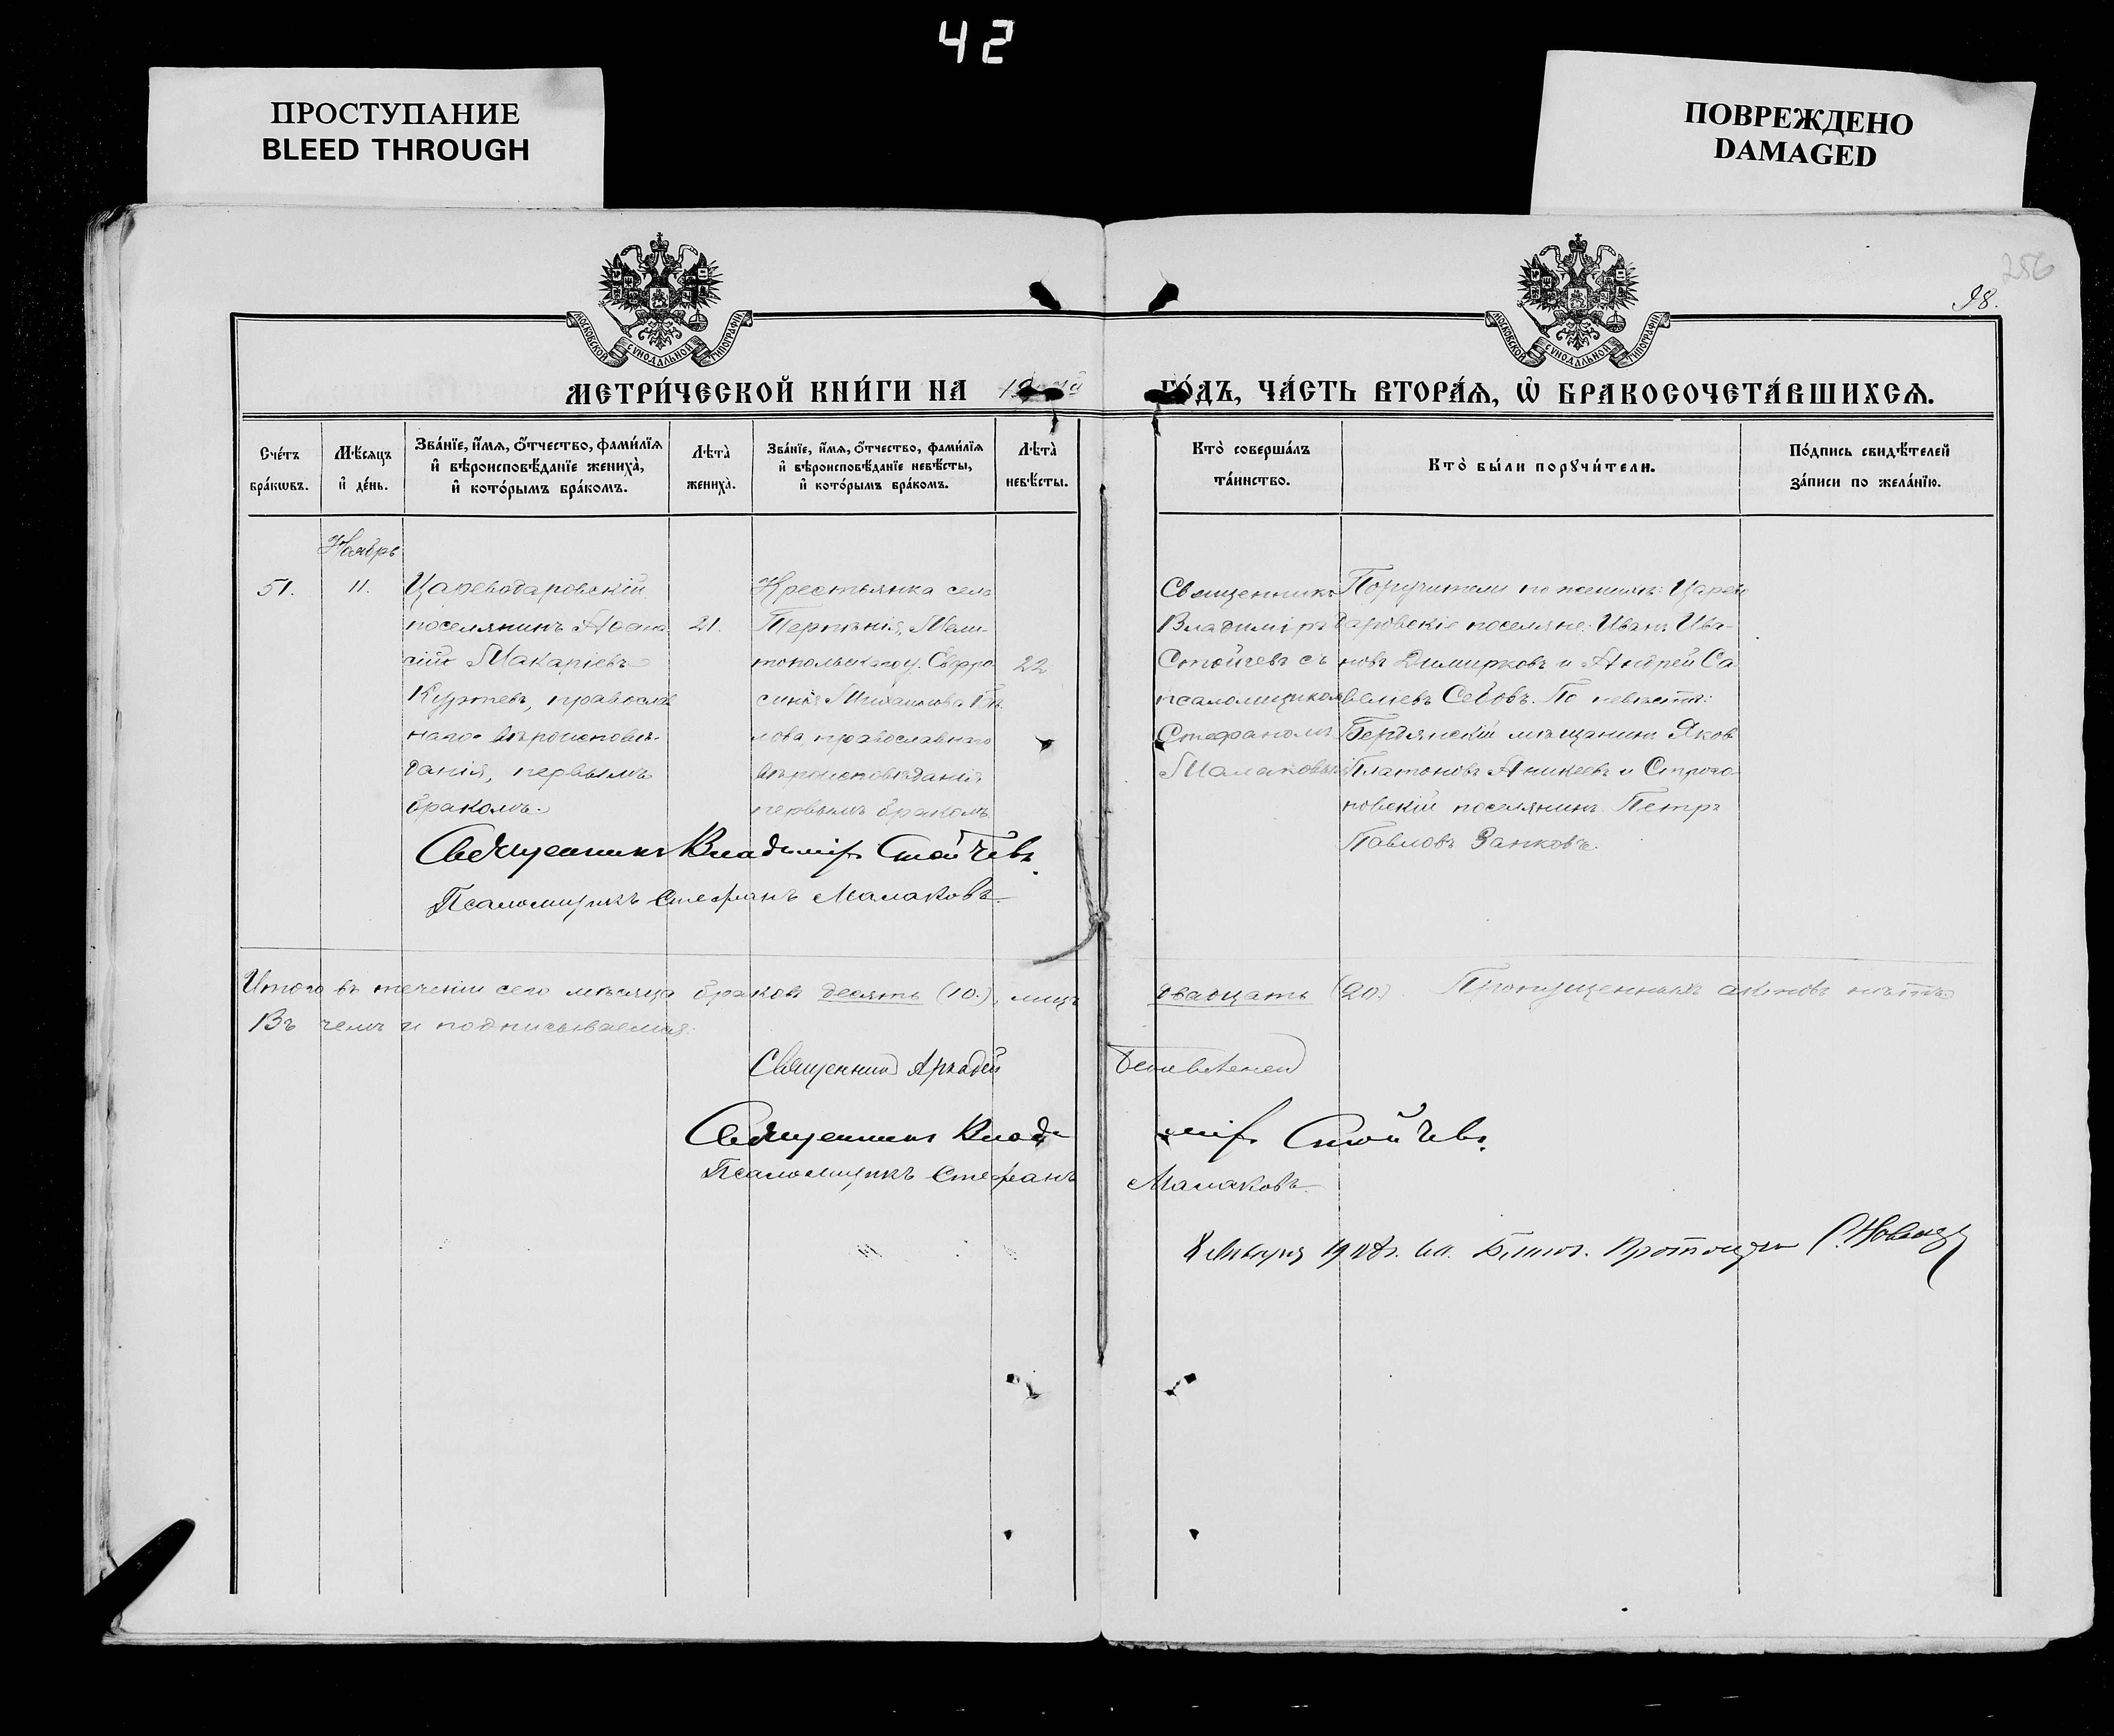 42
ПРОСТУПАНИЕ
BLEED THROUGH
ПОВРЕЖДЕНО
DAMAGED
256
98.
МОСКОВСКОЙ СѴНОДАЛЬНОЙ ТИПОГРАФІИ
МОСКОВСКОЙ СѴНОДАЛЬНОЙ ТИПОГРАФІИ
МЕТРИ́ЧЕСКОЙ КНИ́ГИ НА 19
ГО́ДЪ, ЧА́СТЬ ВТОРА́Ѧ, Ѽ БРАКОСОЧЕТА́ВШИХСѦ.
Сче́тъ бра́кѡвъ.
Мѣ́сяцъ и҆ де́нь.
Зва́нїе, и҆́мѧ, ѻ҆́тчество, фами́лїѧ и҆ вѣроисповѣ́данїе жениха̀, и҆ кото́рымъ бра́комъ.
Лѣта̀ жениха̀.
Зва́нїе, и҆́мѧ, ѻ҆́тчество, фами́лїѧ и҆ вѣроисповѣ́данїе невѣ́сты, и҆ кото́рымъ бра́комъ.
Лѣта̀ невѣ́сты.
Кто̀ соверша́лъ та́инство.
Кто̀ бы́ли порꙋчи́тели.
По́дпись свидѣ́телей за́писи по жела́нїю.
Ноябрь
51.
11.
Цареводаровскій
поселянинъ Афана
сій Макаріевъ
Куртевъ, православ
наго вѣроисповѣ-
данія, первымъ
бракомъ.
21.
Крестьянка села
Терпѣнія, Мели-
топольскаго у. Евфро
синія Михаилова Бѣ
лова, православнаго
вѣроисповѣданія
первымъ бракомъ
22
Священникъ
Владиміръ
Стойчевъ съ
псаломщикомъ
Стефаномъ
Малаковымъ
Поручители по женихѣ: Царево
даровскіе поселяне: Иванъ Ива-
новъ Димирковъ и Андрей Са
веліевъ Севовъ. По невѣстѣ:
Бердянскій мѣщанинъ Яков
Платоновъ Аникеевъ и Строго-
новскій поселянинъ Петръ
Павловъ Занковъ.
Священникъ Владиміръ Стойчевъ.
Псаломщикъ Стефанъ Малаковъ
Итого въ теченіи сего мѣсяца браковъ десять (10.), лицъ двадцать (20.) Пропущенныхъ актовъ нѣтъ.
Въ чемъ и подписываемся:
Священник Аркадій
Священникъ Владиміръ Стойчевъ.
Псаломщикъ Стефанъ Малаковъ
8 Января 1908г.